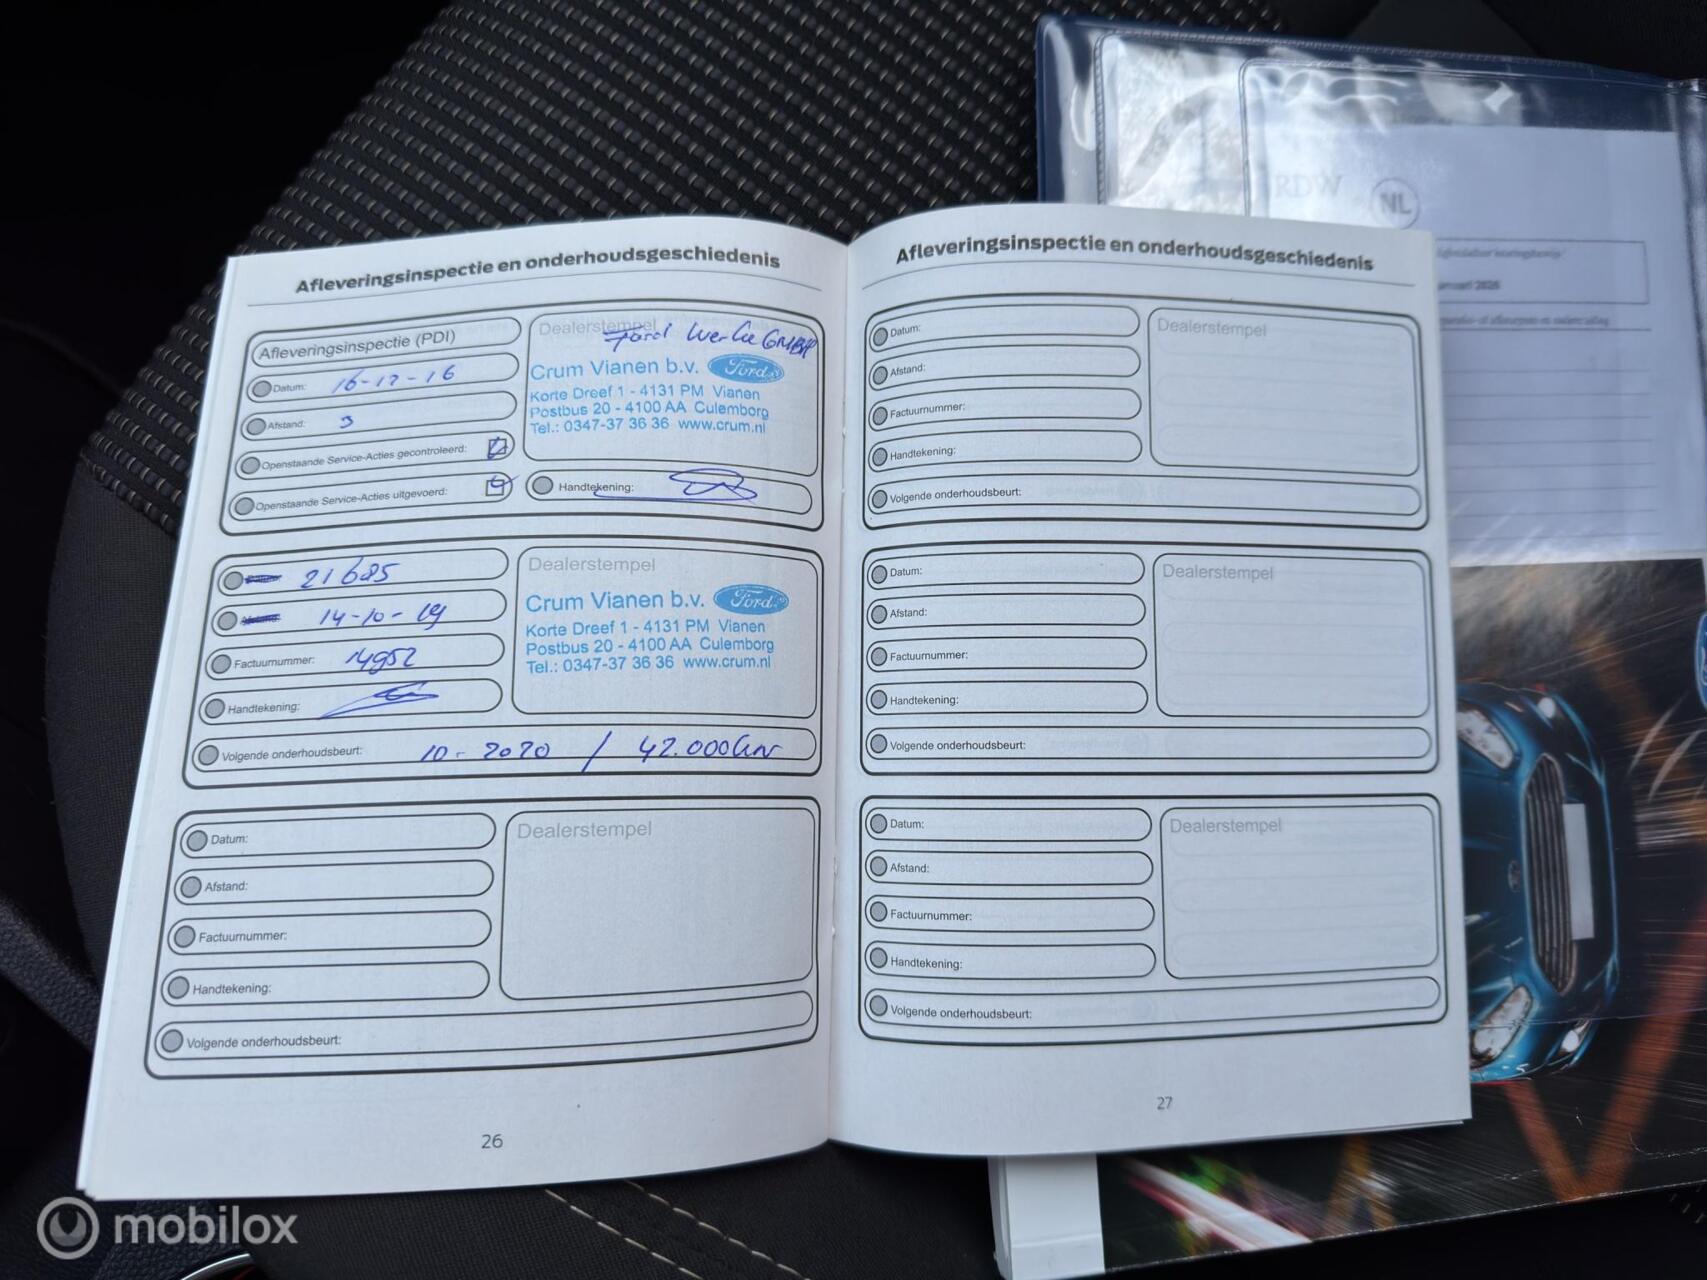 RDW
NL
Afleveringsinspectie en onderhoudsgeschiedenis
Afleveringsinspectie (PDI)
Datum: 16-12-16
Afstand: 3
Openstaande Service-Acties gecontroleerd:
Openstaande Service-Acties uitgevoerd:
Dealerstempel
Ford Werke GMBH
Crum Vianen b.v. Ford
Korte Dreef 1 - 4131 PM Vianen
Postbus 20 - 4100 AA Culemborg
Tel.: 0347-37 36 36 www.crum.nl
Handtekening:
21685
14-10-19
Factuurnummer: 14952
Handtekening:
Volgende onderhoudsbeurt: 10-2020 / 42.000km
Dealerstempel
Crum Vianen b.v. Ford
Korte Dreef 1 - 4131 PM Vianen
Postbus 20 - 4100 AA Culemborg
Tel.: 0347-37 36 36 www.crum.nl
Datum:
Afstand:
Factuurnummer:
Handtekening:
Volgende onderhoudsbeurt:
Dealerstempel
26
Afleveringsinspectie en onderhoudsgeschiedenis
Datum:
Afstand:
Factuurnummer:
Handtekening:
Volgende onderhoudsbeurt:
Dealerstempel
Datum:
Afstand:
Factuurnummer:
Handtekening:
Volgende onderhoudsbeurt:
Dealerstempel
Datum:
Afstand:
Factuurnummer:
Handtekening:
Volgende onderhoudsbeurt:
Dealerstempel
27
mobilox